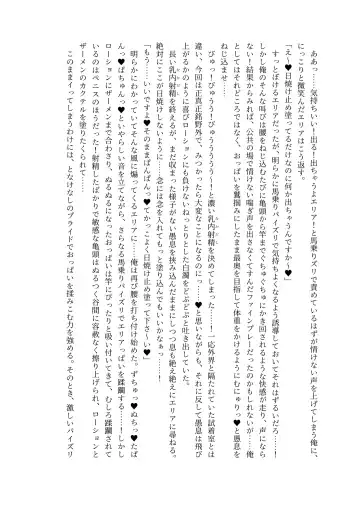 ああっ……気持ちいい！出る！出ちゃうよエリア！と馬乗りズリで責めているはずが情けない声を上げてしまう俺に、
にっこりと微笑んだエリアはこう返す。
「え〜♥日焼け止め塗ってるだけなのに何か出ちゃうんですか〜♥」
すっとぼけるエリアだったが、明らかに馬乗りパイズリで気持ちよくなるよう誘導しておいてそれはずるいだろ…！
しかし俺のそんな叫びは腰をねじ込むたびに亀頭から竿までぐちゅぐちゅにかき回されるような快感が走り、声になら
ない！結果からみれば、公共の場で情けない喘ぎ声を出さなくてすんだファインプレーだったのかもしれないが……俺
としてはそれどころではなく、おっぱいを鷲掴みにしたまま最奥を目指して体重をかけるようにむにゅりっ♥と愚息を
ねじ込ませ…
じゅっ！びゅううっ！びゅうううううっ！と濃い乳内射精を決めてしまった…！一応外界と隔たれていた試着室とは
違い、今回は正真正銘野外で、みつかったら大変なことになるのに…っ♥と思いながらも、それに反して愚息は飛び
上がるかのように喜びローションにも負けないねっとりとした白濁をどぷどぷと吐き出していた。
長い乳内射精を終えるが、まだ収まった様子がない愚息を挟み込んだまましつつ息も絶え絶えにエリアに尋ねる。
絶対にここが日焼けしないように…念には念を入れてもっと塗り込んでもいいかなぁっ…！
「もう……いいですよ♥そのままぱんぱんっ♥てかっこよく日焼け止め塗って下さ〜い♥」
明らかにわかっていてそんな風に煽ってくるエリアに…！俺は再び腰を打ち付け始めた。ずちゅっ♥ぬちっ♥たぱ
んっ♥ぱちゅんっ♥といやらしい音を立てながら、さらなる馬乗りパイズリでエリアっぱいを蹂躙する……！しかし
ローションにザーメンまで合わさり、ぬるぬるになったおっぱいは竿にぴったりと吸い付いてきて、むしろ蹂躙されて
いるのはペニスのほうだった！射精したばかりで敏感な亀頭はぬるつく谷間に容赦なく擦り上げられ、ローションと
ザーメンのカクテルを塗りたくられて……
このままイってしまうわけには、となけなしのプライドでおっぱいを揉みこむ力を強める。そのとき、激しいパイズリ